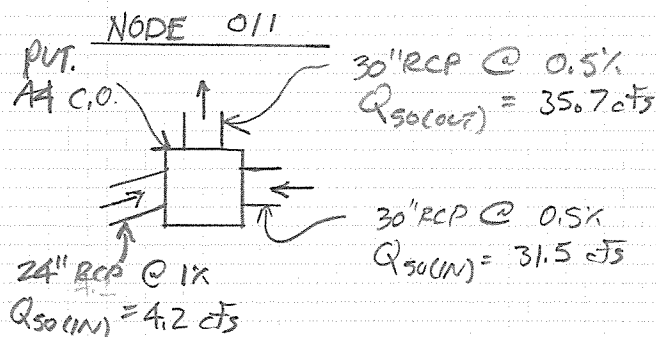 NODE 011
PVT.
A4 C.O.
30" RCP @ 0.5%
Q50(OUT) = 35.7 cfs
30" RCP @ 0.5%
Q50(IN) = 31.5 cfs
24" RCP @ 1%
Q50(IN) = 4.2 cfs